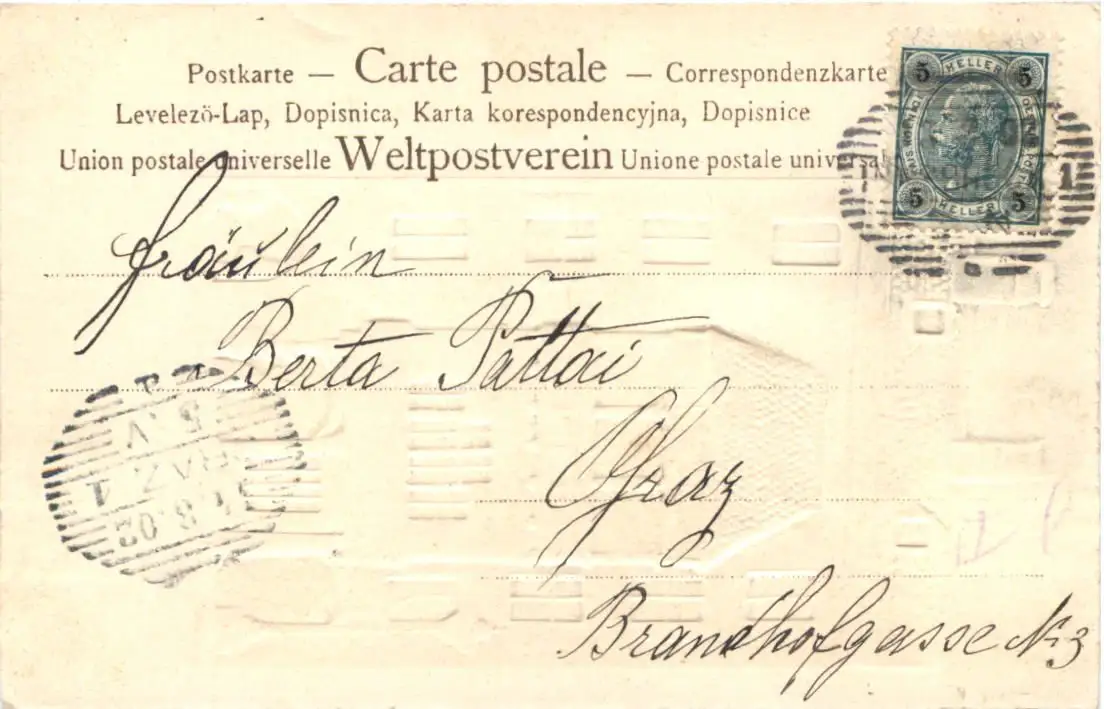 Postkarte — Carte postale — Correspondenzkarte
Levelező-Lap, Dopisnica, Karta korespondencyjna, Dopisnice
Union postale universelle Weltpostverein Unione postale universa
5 HELLER 5
5 HELLER 5
1
Fräulein
Berta Pattai
Graz
Brandhofgasse Nr. 3
5.V
RAZ 1
8.02